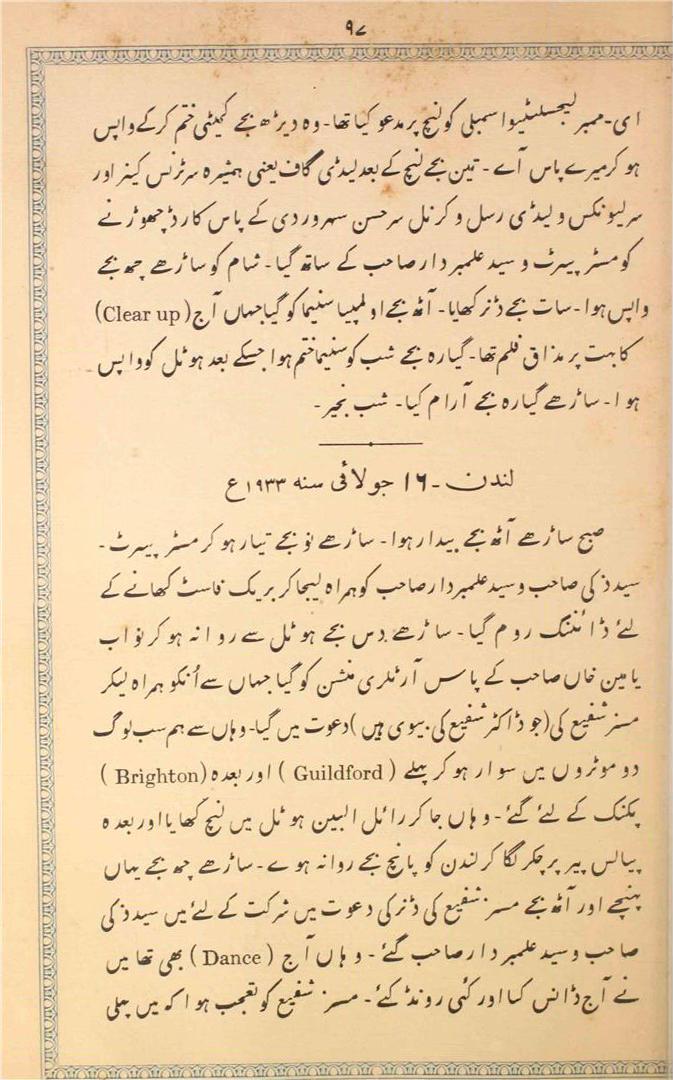 ۹۷
ای - ممبر لیجسلیٹیو اسمبلی کو لنچ پر مدعو کیا تھا - وہ دیڑھ بجے کمیٹی ختم کر کے واپس
ہو کر میرے پاس آے - تین بجے لنچ کے بعد لیڈی گاف یعنی ہمشیرہ سر ٹرنس کینر اور
سر لیونکس و لیڈی رسل و کرنل سر حسن سہروردی کے پاس کارڈ چھوڑ نے
کو مسٹر پیرٹ و سید علمبردار صاحب کے ساتھ گیا - شام کو ساڑھے چھ بجے
واپس ہوا - سات بجے ڈنر کھایا - آٹھ بجے اولمپیا سنیما کو گیا جہاں آج (Clear up)
کا بہت پر مذاق فلم تھا - گیارہ بجے شب کو سنیما ختم ہوا جسکے بعد ہوٹل کو واپس
ہوا - ساڑھے گیارہ بجے آرام کیا - شب بخیر -
لندن - ۱٦ جولائی سنہ ۱۹۳۳ع
صبح ساڑھے آٹھ بجے بیدار ہوا - ساڑھے نو بجے تیار ہو کر مسٹر پیرٹ -
سید ذکی صاحب و سید علمبردار صاحب کو ہمراہ لیجا کر بریک فاسٹ کھانے کے
لئے ڈائننگ روم گیا - ساڑھے دس بجے ہوٹل سے روانہ ہو کر نواب
یامین خاں صاحب کے پاس آرٹلری منشن کو گیا جہاں سے اُنکو ہمراہ لیکر
مسز شفیع کی (جو ڈاکٹر شفیع کی بیوی ہیں) دعوت میں گیا - وہاں سے ہم سب لوگ
دو موٹروں میں سوار ہو کر پہلے (Guildford) اور بعدہ (Brighton)
پکنک کے لئے گئے - وہاں جا کر رائل البین ہوٹل میں لنچ کھایا اور بعدہ
پیالس پیر پر چکر لگا کر لندن کو پانچ بجے روانہ ہوے - ساڑھے چھ بجے یہاں
پنہچے اور آٹھ بجے مسز شفیع کی ڈنر کی دعوت میں شرکت کے لئے میں سید ذکی
صاحب و سید علمبردار صاحب گئے - وہاں آج (Dance) بھی تھا میں
نے آج ڈانس کیا اور کئی رونڈ کئے - مسز شفیع کو تعجب ہوا کہ میں پہلی